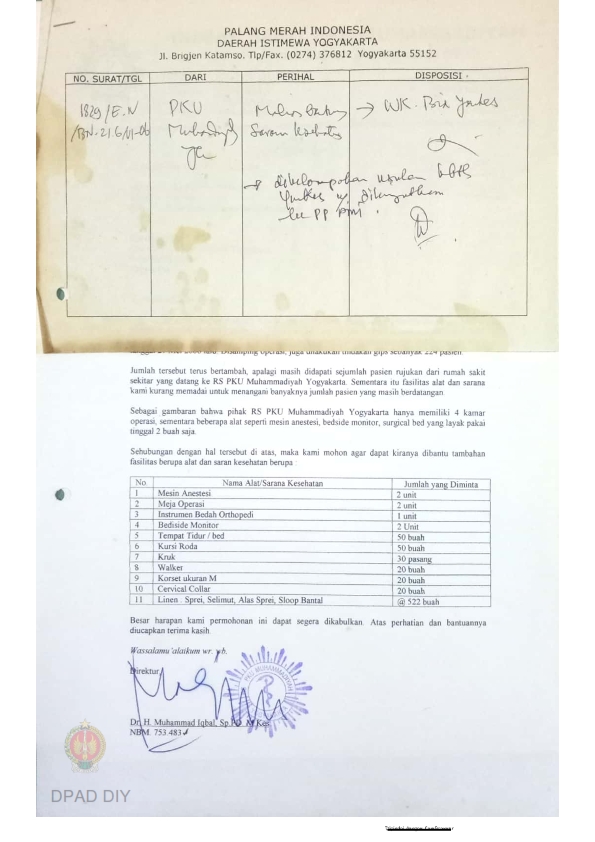 PALANG MERAH INDONESIA
DAERAH ISTIMEWA YOGYAKARTA
Jl. Brigjen Katamso. Tlp/Fax. (0274) 376812 Yogyakarta 55152
NO. SURAT/TGL DARI PERIHAL DISPOSISI
1829/E.N PKU → WK. Bid Yankes
Saran
→ dikelompokan usulan
ke PP PMI.
juga dilakukan tindakan gips sebanyak 224 pasien.
Jumlah tersebut terus bertambah, apalagi masih didapati sejumlah pasien rujukan dari rumah sakit
sekitar yang datang ke RS PKU Muhammadiyah Yogyakarta. Sementara itu fasilitas alat dan sarana
kami kurang memadai untuk menangani banyaknya jumlah pasien yang masih berdatangan.
Sebagai gambaran bahwa pihak RS PKU Muhammadiyah Yogyakarta hanya memiliki 4 kamar
operasi, sementara beberapa alat seperti mesin anestesi, bedside monitor, surgical bed yang layak pakai
tinggal 2 buah saja.
Sehubungan dengan hal tersebut di atas, maka kami mohon agar dapat kiranya dibantu tambahan
fasilitas berupa alat dan saran kesehatan berupa :
No Nama Alat/Sarana Kesehatan Jumlah yang Diminta
1 Mesin Anestesi 2 unit
2 Meja Operasi 2 unit
3 Instrumen Bedah Orthopedi 1 unit
4 Bediside Monitor 2 Unit
5 Tempat Tidur / bed 50 buah
6 Kursi Roda 50 buah
7 Kruk 30 pasang
8 Walker 20 buah
9 Korset ukuran M 20 buah
10 Cervical Collar 20 buah
11 Linen : Sprei, Selimut, Alas Sprei, Sloop Bantal @ 522 buah
Besar harapan kami permohonan ini dapat segera dikabulkan. Atas perhatian dan bantuannya
diucapkan terima kasih
Wassalamu 'alaikum wr. wb.
Direktur,
PKU MUHAMMADIYAH
Dr. H. Muhammad Iqbal, Sp.PD, M.Kes
NBM. 753.483
DPAD DIY